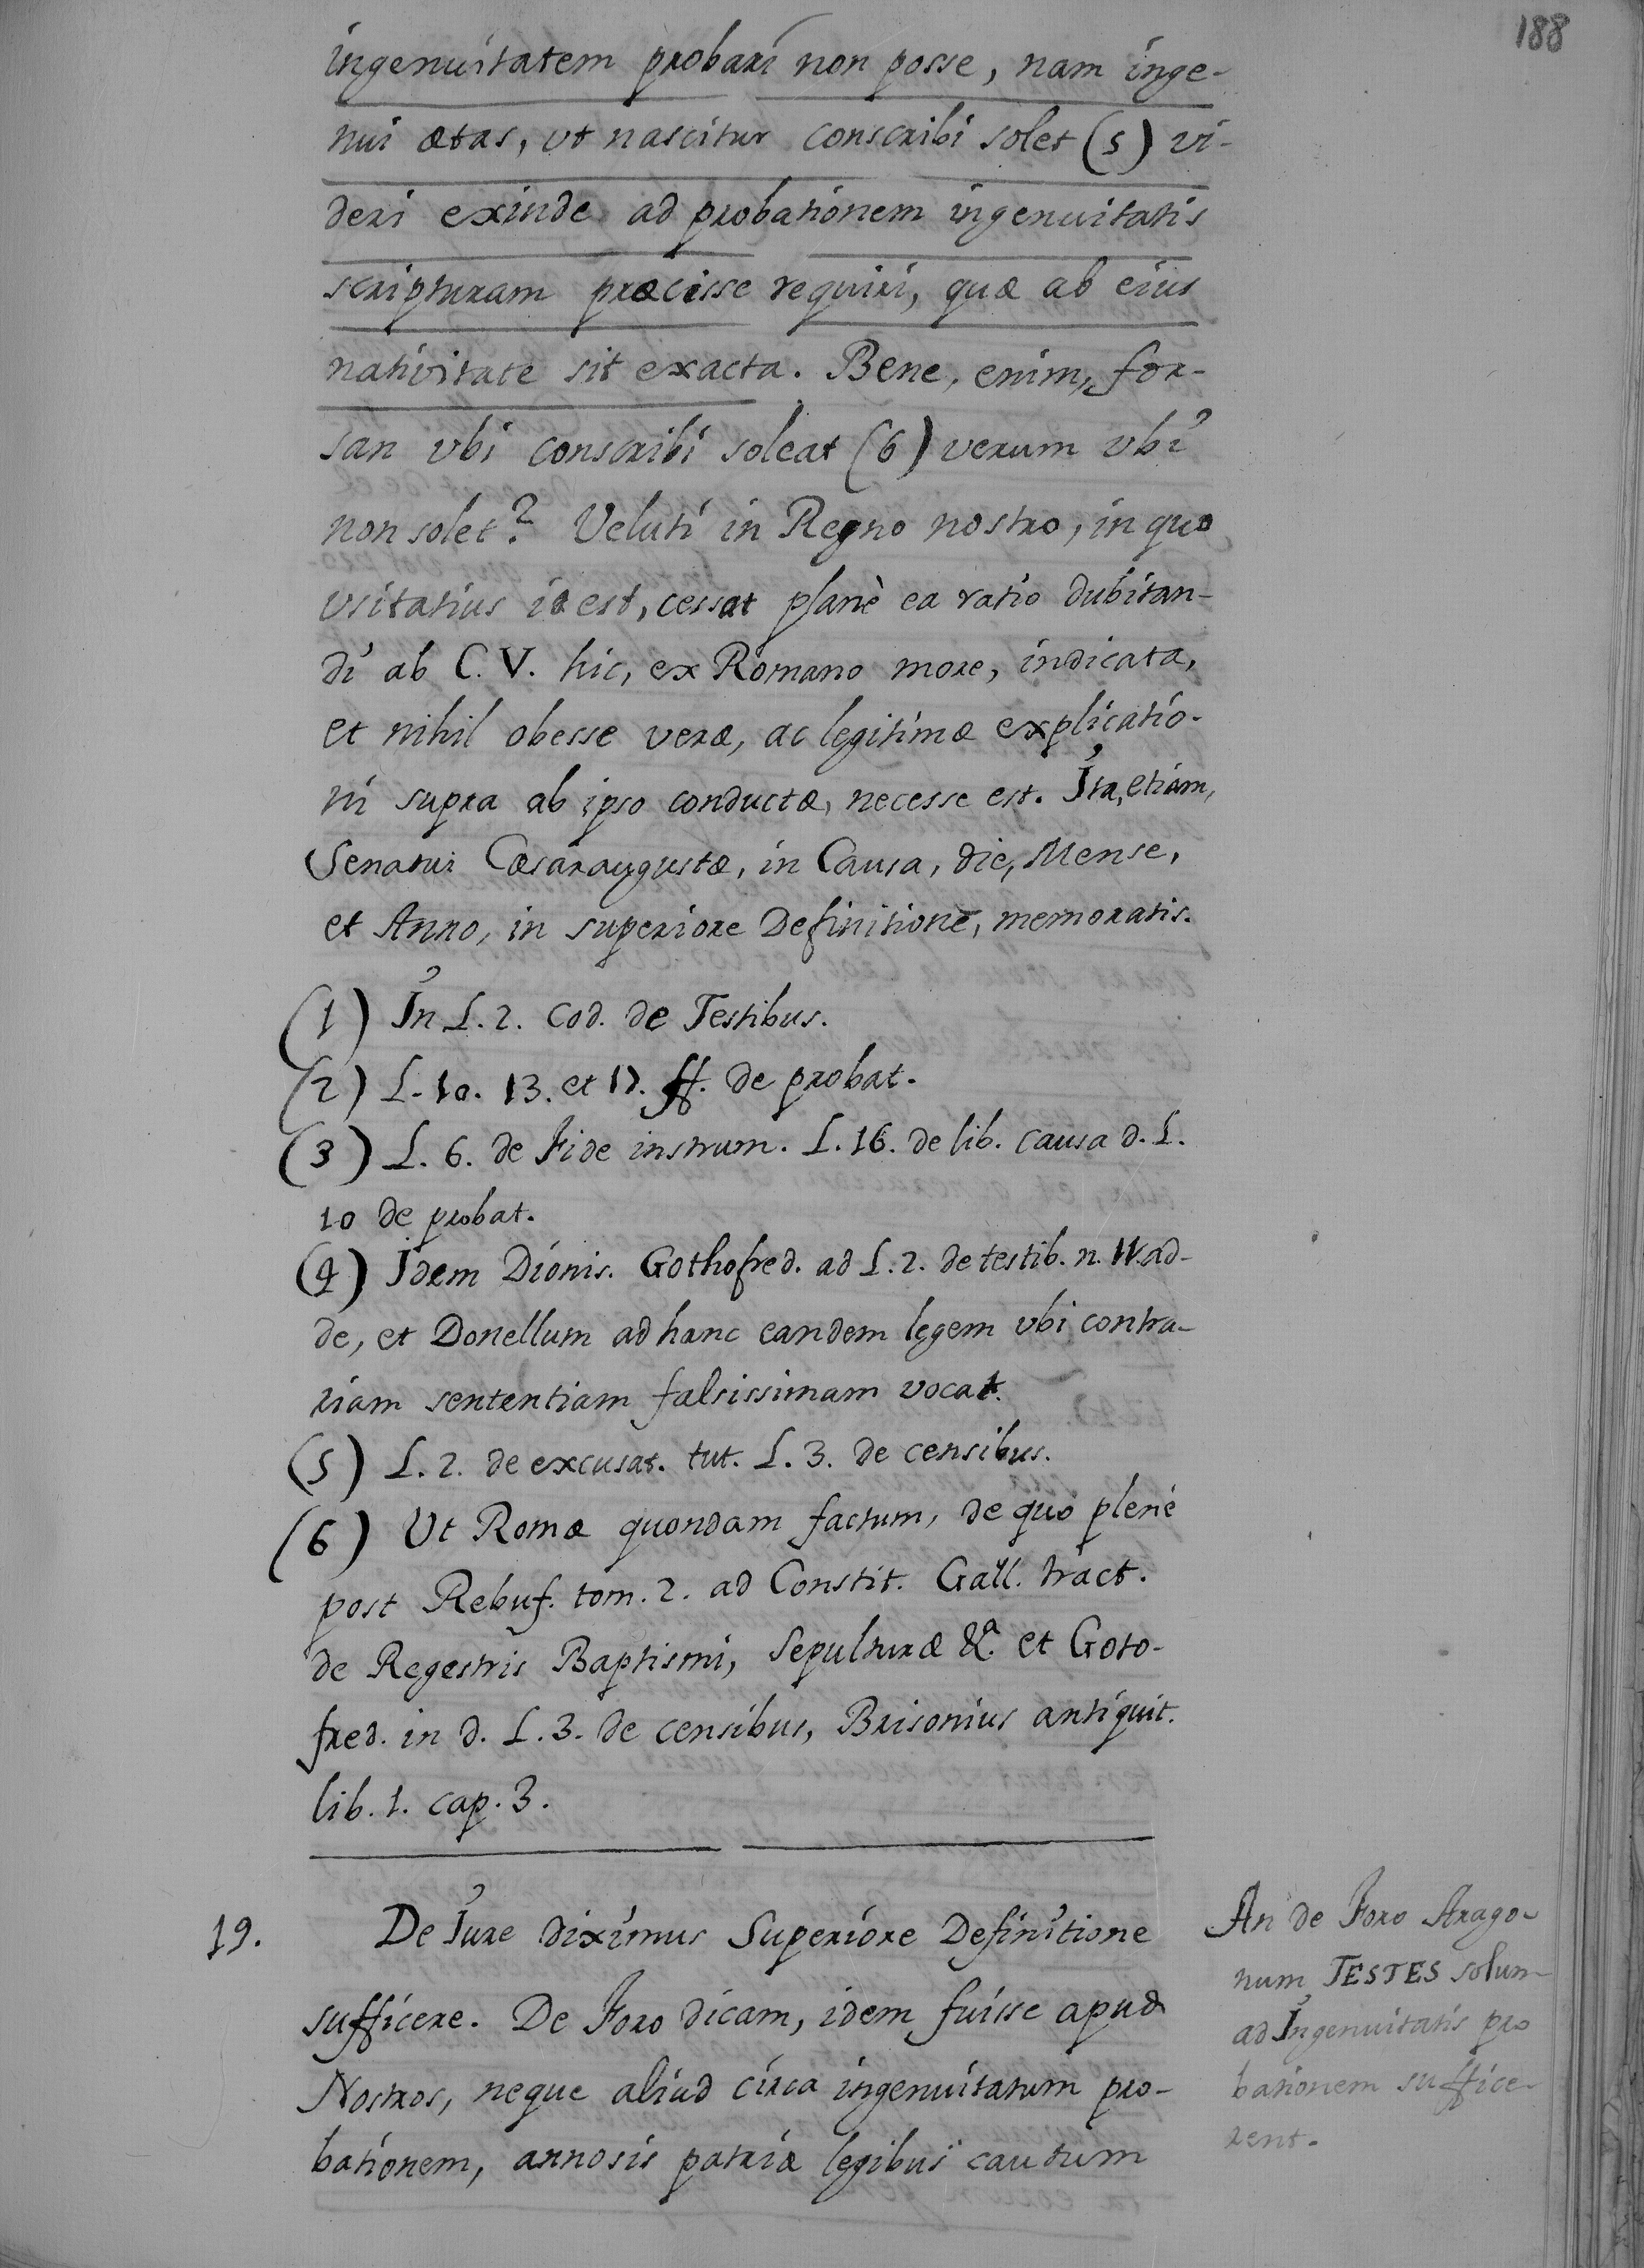 188
ingenuitatem probari non posse, nam inge-
nui ætas, ut nascitur conscribi solet (5) vi-
deri exinde ad probationem ingenuitatis
scripturam præcisse requiri, quæ ab eius
nativitate sit exacta. Bene, enim, for-
san ubi conscribi soleat (6) verum ubi
non solet? Veluti in Regno nostro, in quo
usitatius id est, cessat planè ea ratio dubitan-
di ab C.V. hic, ex Romano more, indicata,
et nihil obesse veræ, ac legitimæ explicatio-
ni supra ab ipso conductæ, necesse est. Ita, etiam,
Senatui Cæsaraugustæ, in Causa, die, Mense,
et Anno, in superiore Definitione, memoratis.
(1) In L. 2. Cod. de Testibus.
(2) L. 10. 13. et 17. ff. de probat.
(3) L. 6. de Fide instrum. L. 16. de lib. causa d. L.
10 de probat.
(4) Idem Dionis. Gothofred. ad L. 2. de testib. n. 11. ad-
de, et Donellum ad hanc eandem legem ubi contra-
riam sententiam falsissimam vocat.
(5) L. 2. de excusat. tut. L. 3. de censibus.
(6) Ut Romæ quondam factum, de quo plenè
post Rebuf. tom. 2. ad Constit. Gall. tract.
de Regestris Baptismi, Sepulturæ &ª. et Goto-
fred. in d. L. 3. de censibus, Brisonius antiquit.
lib. 1. cap. 3.
19. De Iure diximus Superiore Definitione
sufficere. De Foro dicam, idem fuisse apud
Nostros, neque aliud circa ingenuitatum pro-
bationem, annosis patriæ legibus cautum
An de Foro Arago-
num, TESTES solum
ad Ingenuitatis pro
bationem suffice-
rent.